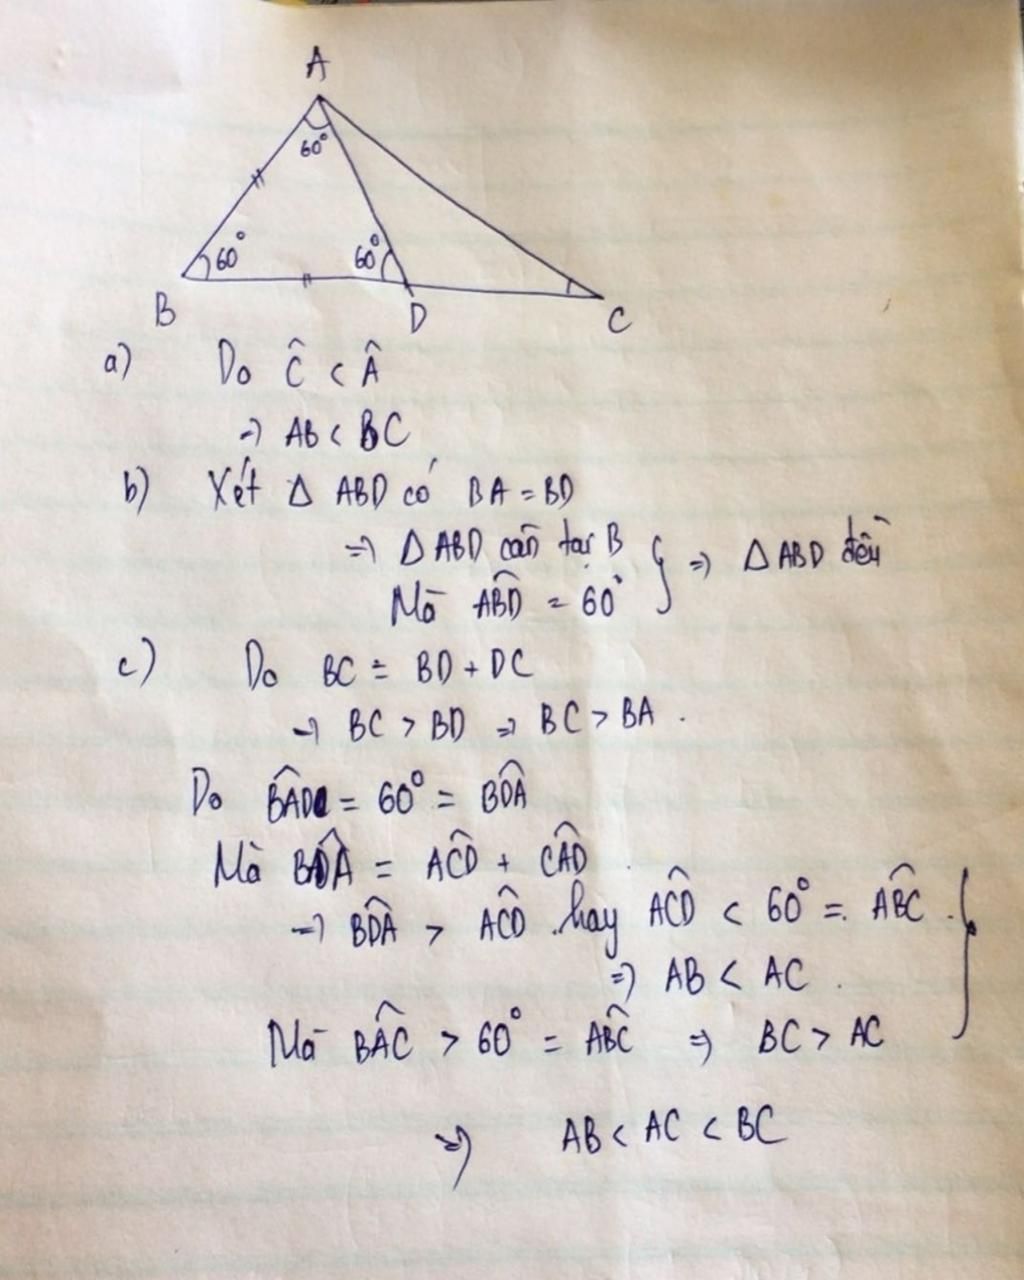 A
60°
60°
60°
B
D
C
a) Do Ĉ < Â
=> AB < BC
b) Xét Δ ABD có BA = BD
=> Δ ABD cân tại B
Mà \widehat{ABD} = 60° } => Δ ABD đều
c) Do BC = BD + DC
=> BC > BD => BC > BA .
Do \widehat{BAD} = 60° = \widehat{BDA}
Mà \widehat{BDA} = \widehat{ACD} + \widehat{CAD}
=> \widehat{BDA} > \widehat{ACD} . hay \widehat{ACD} < 60° = \widehat{ABC} .
=> AB < AC .
Mà \widehat{BAC} > 60° = \widehat{ABC} => BC > AC }
=> AB < AC < BC